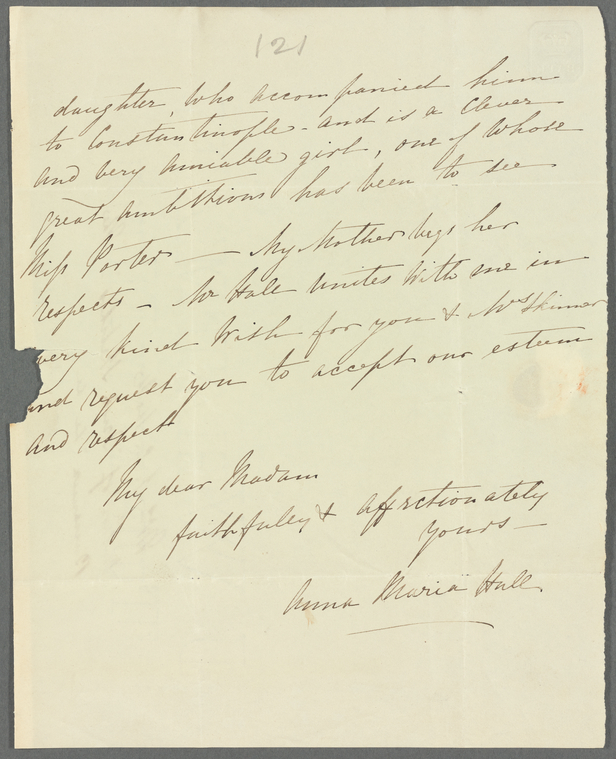 121
daughter, who accompanied him
to Constantinople - and is a Clever
and very amiable girl, one of whose
great ambitions has been to see
Miss Porter — My Mother begs her
respects — Mr Hall Unites With me in
very kind Wish for you & Mrs Skinner
and request you to accept our esteem
and respect
My dear Madam
faithfuley & affectionately
yours —
Anna Maria Hall